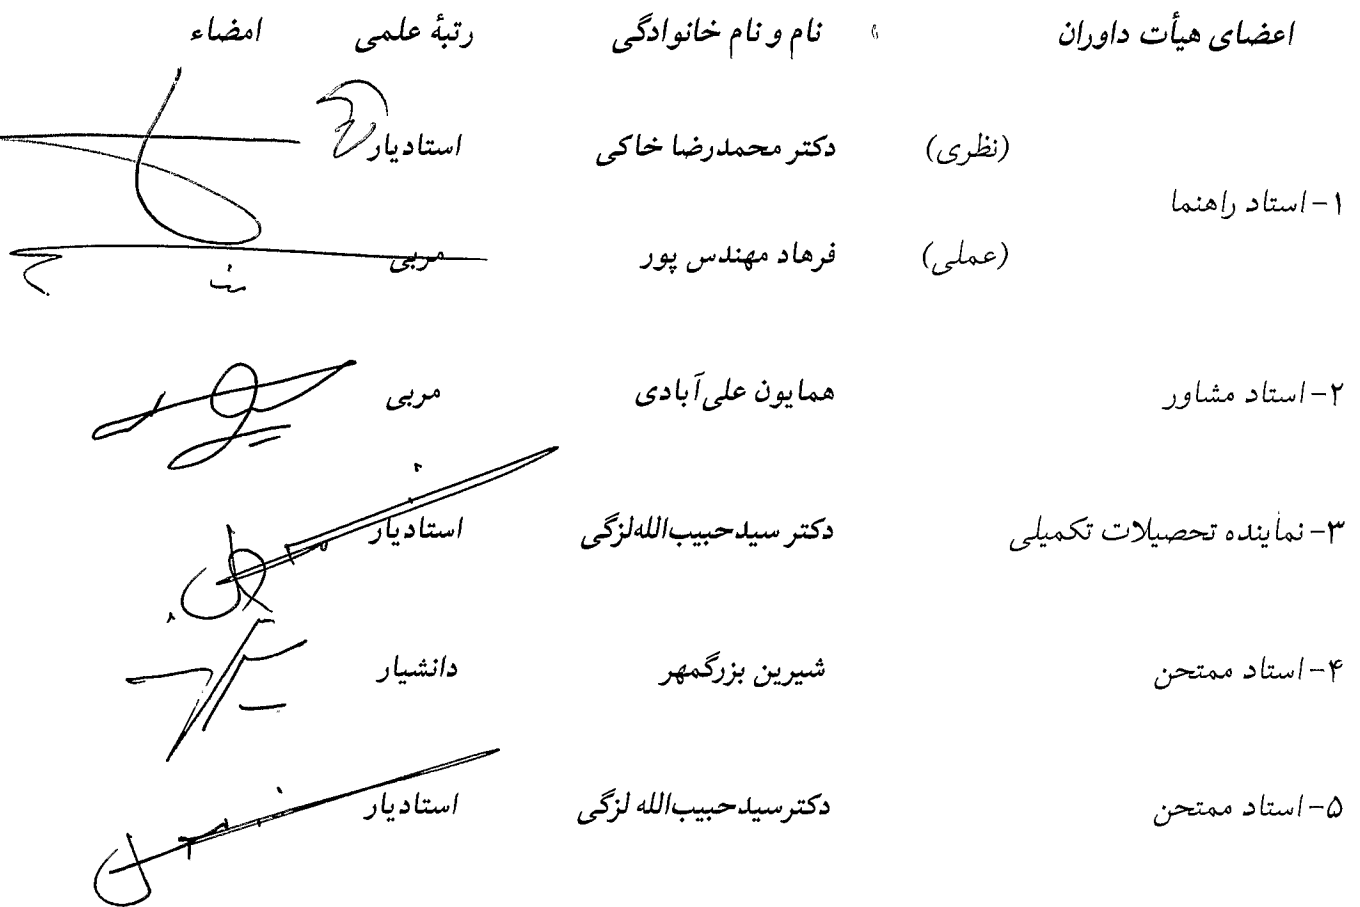 اعضای هیأت داوران نام و نام خانوادگی رتبهٔ علمی امضاء
(نظری) دکتر محمدرضا خاکی استادیار
۱- استاد راهنما
(عملی) فرهاد مهندس پور مربی
۲- استاد مشاور همایون علی‌آبادی مربی
۳- نماینده تحصیلات تکمیلی دکتر سیدحبیب‌الله‌لزگی استادیار
۴- استاد ممتحن شیرین بزرگمهر دانشیار
۵- استاد ممتحن دکترسیدحبیب‌الله لزگی استادیار